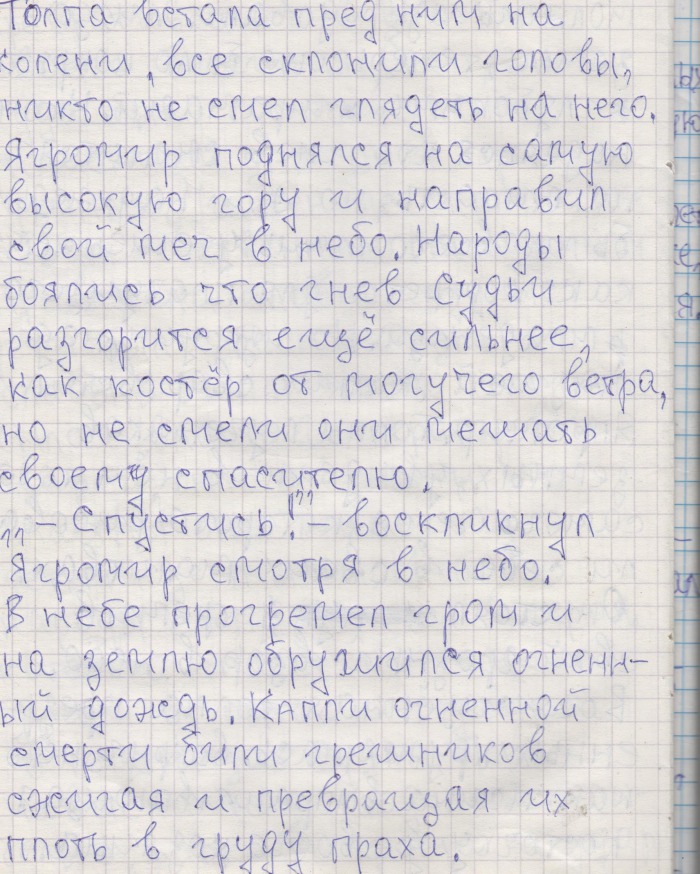 Толпа встала пред ним на
колени, все склонили головы,
никто не смел глядеть на него.
Ягромир поднялся на самую
высокую гору и направил
свой меч в небо. Народы
боялись что гнев судьи
разгорится ещё сильнее,
как костёр от могучего ветра,
но не смели они мешать
своему спасителю.
„– Спустись!” – воскликнул
Ягромир смотря в небо.
В небе прогремел гром и
на землю обрушился огненн-
ый дождь. Капли огненной
смерти били грешников
сжигая и превращая их
плоть в груду праха.